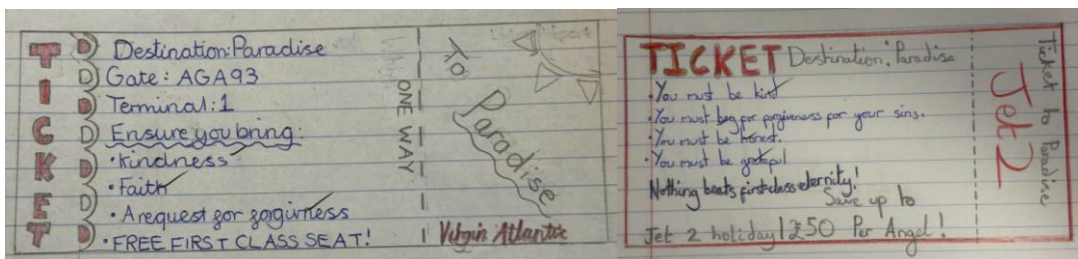 TICKET
Destination: Paradise
Gate: AGA93
Terminal: 1
Ensure you bring:
• Kindness
• Faith
• A request for forgivness
• FREE FIRST CLASS SEAT!
ONE WAY
To
Paradise
Virgin Atlantic
TICKET Destination: Paradise
• You must be kind
• You must beg for forgiveness for your sins.
• You must be honest.
• You must be grateful
Nothing beats first class eternity!
Save up to
Jet 2 holiday | £50 Per Angel!
Jet 2
Ticket to Paradise